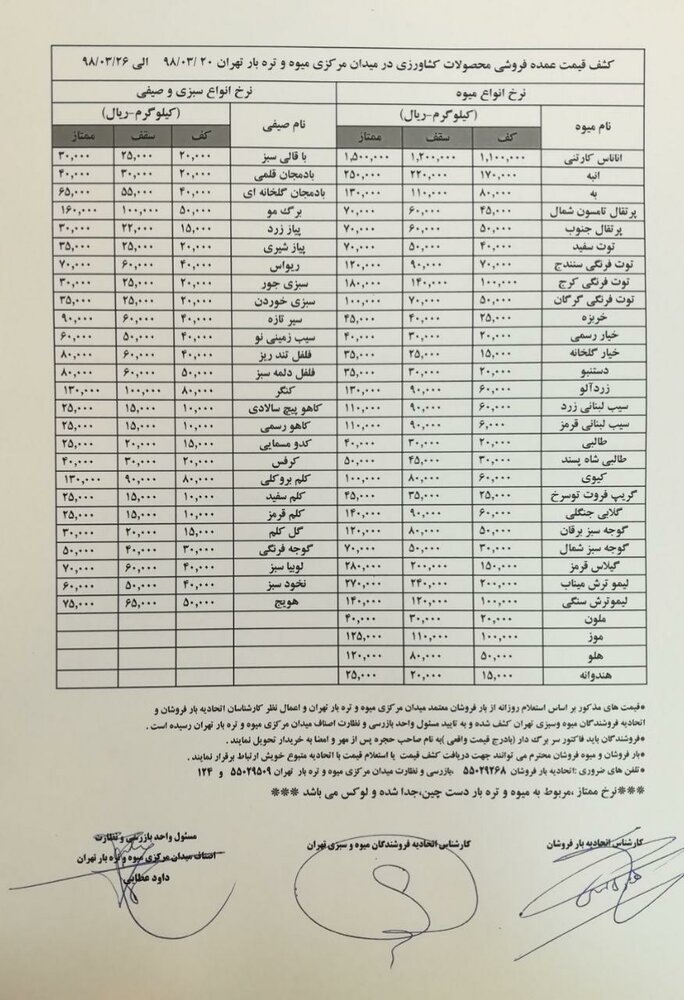 کشف قیمت عمده فروشی محصولات کشاورزی در میدان مرکزی میوه و تره بار تهران ۹۸/۰۳/۲۰ الی ۹۸/۰۳/۲۶
نرخ انواع میوه
(کیلوگرم-ریال)
نام میوه کف سقف ممتاز
اناناس کارتنی ۱,۱۰۰,۰۰۰ ۱,۲۰۰,۰۰۰ ۱,۵۰۰,۰۰۰
انبه ۱۷۰,۰۰۰ ۲۲۰,۰۰۰ ۲۵۰,۰۰۰
به ۸۰,۰۰۰ ۱۱۰,۰۰۰ ۱۳۰,۰۰۰
پرتقال تامسون شمال ۴۵,۰۰۰ ۶۰,۰۰۰ ۷۰,۰۰۰
پرتقال جنوب ۵۰,۰۰۰ ۶۰,۰۰۰ ۷۰,۰۰۰
توت سفید ۴۰,۰۰۰ ۵۰,۰۰۰ ۷۰,۰۰۰
توت فرنگی سنندج ۷۰,۰۰۰ ۹۰,۰۰۰ ۱۲۰,۰۰۰
توت فرنگی کرج ۱۰۰,۰۰۰ ۱۴۰,۰۰۰ ۱۸۰,۰۰۰
توت فرنگی گرگان ۵۰,۰۰۰ ۷۰,۰۰۰ ۱۰۰,۰۰۰
خربزه ۲۵,۰۰۰ ۴۰,۰۰۰ ۴۵,۰۰۰
خیار رسمی ۲۰,۰۰۰ ۳۰,۰۰۰ ۴۰,۰۰۰
خیار گلخانه ۱۵,۰۰۰ ۲۵,۰۰۰ ۳۵,۰۰۰
دستنبو ۲۰,۰۰۰ ۳۰,۰۰۰ ۳۵,۰۰۰
زردآلو ۶۰,۰۰۰ ۹۰,۰۰۰ ۱۳۰,۰۰۰
سیب لبنانی زرد ۶۰,۰۰۰ ۹۰,۰۰۰ ۱۱۰,۰۰۰
سیب لبنانی قرمز ۶,۰۰۰ ۹۰,۰۰۰ ۱۱۰,۰۰۰
طالبی ۲۰,۰۰۰ ۳۰,۰۰۰ ۴۰,۰۰۰
طالبی شاه پسند ۳۰,۰۰۰ ۴۵,۰۰۰ ۵۰,۰۰۰
کیوی ۶۰,۰۰۰ ۸۰,۰۰۰ ۱۰۰,۰۰۰
گریپ فروت توسرخ ۲۵,۰۰۰ ۳۵,۰۰۰ ۴۵,۰۰۰
گلابی جنگلی ۶۰,۰۰۰ ۹۰,۰۰۰ ۱۴۰,۰۰۰
گوجه سبز برقان ۵۰,۰۰۰ ۸۰,۰۰۰ ۱۲۰,۰۰۰
گوجه سبز شمال ۳۰,۰۰۰ ۵۰,۰۰۰ ۷۰,۰۰۰
گیلاس قرمز ۱۵۰,۰۰۰ ۲۰۰,۰۰۰ ۲۸۰,۰۰۰
لیمو ترش میناب ۲۰۰,۰۰۰ ۲۴۰,۰۰۰ ۲۷۰,۰۰۰
لیموترش سنگی ۱۰۰,۰۰۰ ۱۲۰,۰۰۰ ۱۴۰,۰۰۰
ملون ۲۰,۰۰۰ ۳۰,۰۰۰ ۴۰,۰۰۰
موز ۱۰۰,۰۰۰ ۱۱۰,۰۰۰ ۱۲۵,۰۰۰
هلو ۵۰,۰۰۰ ۸۰,۰۰۰ ۱۲۰,۰۰۰
هندوانه ۱۵,۰۰۰ ۲۰,۰۰۰ ۲۵,۰۰۰
نرخ انواع سبزی و صیفی
(کیلوگرم-ریال)
نام صیفی کف سقف ممتاز
با قالی سبز ۲۰,۰۰۰ ۲۵,۰۰۰ ۳۰,۰۰۰
بادمجان قلمی ۲۰,۰۰۰ ۳۰,۰۰۰ ۴۰,۰۰۰
بادمجان گلخانه ای ۴۰,۰۰۰ ۵۵,۰۰۰ ۶۵,۰۰۰
برگ مو ۵۰,۰۰۰ ۱۰۰,۰۰۰ ۱۶۰,۰۰۰
پیاز زرد ۱۵,۰۰۰ ۲۲,۰۰۰ ۳۰,۰۰۰
پیاز شیری ۲۰,۰۰۰ ۲۵,۰۰۰ ۳۵,۰۰۰
ریواس ۴۰,۰۰۰ ۶۰,۰۰۰ ۷۰,۰۰۰
سبزی جور ۲۰,۰۰۰ ۲۵,۰۰۰ ۳۰,۰۰۰
سبزی خوردن ۲۰,۰۰۰ ۲۵,۰۰۰ ۳۵,۰۰۰
سیر تازه ۴۰,۰۰۰ ۶۰,۰۰۰ ۹۰,۰۰۰
سیب زمینی نو ۴۰,۰۰۰ ۵۰,۰۰۰ ۶۰,۰۰۰
فلفل تند ریز ۴۰,۰۰۰ ۶۰,۰۰۰ ۸۰,۰۰۰
فلفل دلمه سبز ۵۰,۰۰۰ ۶۰,۰۰۰ ۸۰,۰۰۰
کنگر ۸۰,۰۰۰ ۱۰۰,۰۰۰ ۱۳۰,۰۰۰
کاهو پیچ سالادی ۱۰,۰۰۰ ۱۵,۰۰۰ ۲۵,۰۰۰
کاهو رسمی ۱۰,۰۰۰ ۱۵,۰۰۰ ۲۵,۰۰۰
کدو مسمایی ۱۵,۰۰۰ ۲۰,۰۰۰ ۲۵,۰۰۰
کرفس ۲۰,۰۰۰ ۳۰,۰۰۰ ۴۰,۰۰۰
کلم بروکلی ۸۰,۰۰۰ ۹۰,۰۰۰ ۱۳۰,۰۰۰
کلم سفید ۱۰,۰۰۰ ۱۵,۰۰۰ ۲۵,۰۰۰
کلم قرمز ۱۰,۰۰۰ ۱۵,۰۰۰ ۲۵,۰۰۰
گل کلم ۱۵,۰۰۰ ۲۰,۰۰۰ ۳۰,۰۰۰
گوجه فرنگی ۳۰,۰۰۰ ۴۰,۰۰۰ ۵۰,۰۰۰
لوبیا سبز ۴۰,۰۰۰ ۶۰,۰۰۰ ۷۰,۰۰۰
نخود سبز ۴۰,۰۰۰ ۵۰,۰۰۰ ۶۰,۰۰۰
هویج ۵۰,۰۰۰ ۶۵,۰۰۰ ۷۵,۰۰۰
*قیمت های مذکور بر اساس استعلام روزانه از بار فروشان معتمد میدان مرکزی میوه و تره بار تهران و اعمال نظر کارشناسان اتحادیه بار فروشان و
اتحادیه فروشندگان میوه وسبزی تهران کشف شده و به تایید مسئول واحد بازرسی و نظارت اصناف میدان مرکزی میوه و تره بار تهران رسیده است .
*فروشندگان باید فاکتور سر برگ دار (بادرج قیمت واقعی )به نام صاحب حجره پس از مهر و امضا به خریدار تحویل نمایند .
*بار فروشان و میوه فروشان محترم می توانند جهت دریافت کشف قیمت یا استعلام قیمت با اتحادیه متبوع خویش ارتباط برقرار نمایند .
*تلفن های ضروری :اتحادیه بار فروشان ۵۵۰۲۹۲۶۸ ،بازرسی و نظارت میدان مرکزی میوه و تره بار تهران ۵۵۰۲۹۵۰۹ و ۱۲۴
***نرخ ممتاز ،مربوط به میوه و تره بار دست چین،جدا شده و لوکس می باشد ***
کارشناس اتحادیه بار فروشان
کارشناس اتحادیه فروشندگان میوه و سبزی تهران
مسئول واحد بازرسی و نظارت
اصناف میدان مرکزی میوه و تره بار تهران
داود عطایی